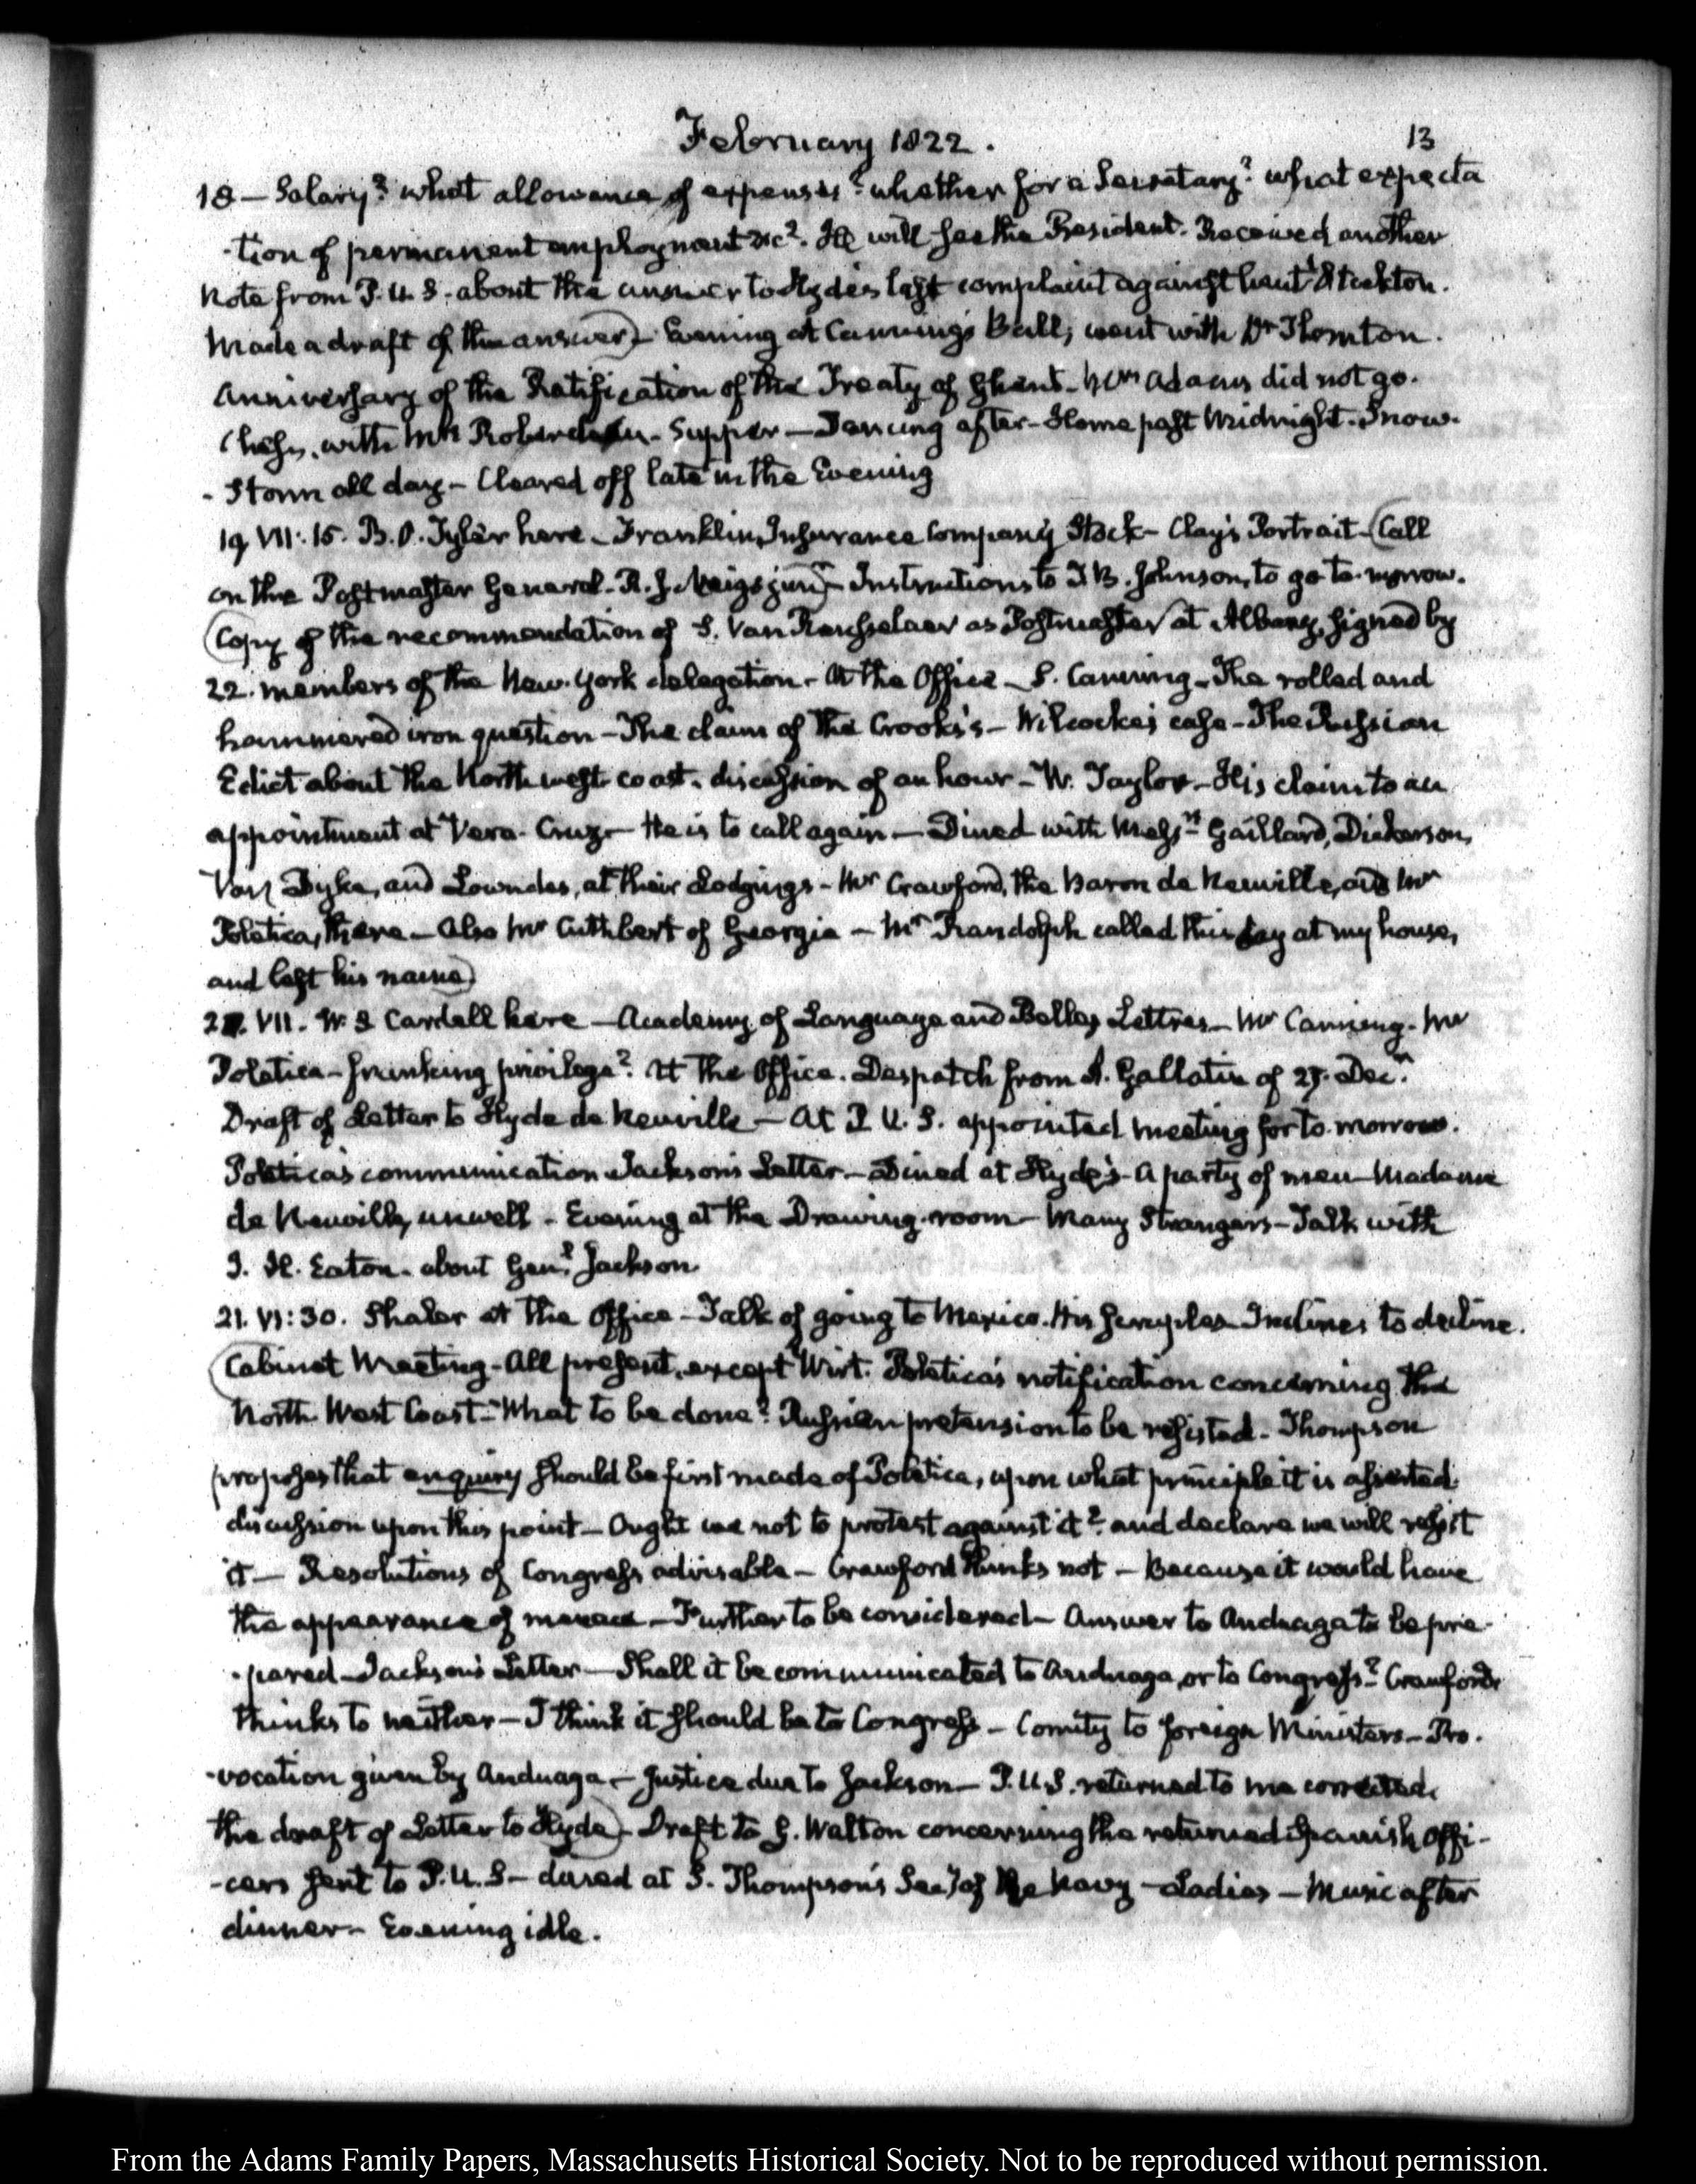 February 1822.
13
18 — Salary? what allowance of expenses? whether for a Secretary? what expecta
-tion of permanent employment &c? He will see the President. Received another
Note from P. U. S. about the answer to Hyde's last complaint against Lieut. Stockton.
Made a draft of the answer) Evening at Canning's Ball; went with Dr Thornton.
Anniversary of the Ratification of the Treaty of Ghent — Mrs Adams did not go.
Chess, with Mr Roberdeau — Supper — Dancing after — Home past Midnight. Snow-
-Storm all day — Cleared off late in the Evening
19 VII: 15. B. O. Tyler here — Franklin Insurance Company Stock — Clay's Portrait — (Call
on the Postmaster General — R. J. Meigs junr) — Instructions to J B. Johnson, to go to-morrow.
(Copy of the recommendation of S. Van Rensselaer as Postmaster at Albany, signed by
22. members of the New-York delegation — At the Office — S. Canning — The rolled and
hammered iron question — The claim of the Crooks's — Wilcocke's case — The Russian
Edict about the North west-coast. discussion of an hour — W. Taylor — His claim to an
appointment at Vera-Cruz — He is to call again — Dined with Messrs Gaillard, Dickerson,
Van Dyke, and Lowndes, at their Lodgings — Mr Crawford, the Baron de Neuville, and Mr
Poletica, there — Also Mr Cuthbert of Georgia — Mr Randolph called this day at my house,
and left his name)
20. VII. W. S Cardell here — Academy of Language and Belles Lettres — Mr Canning — Mr
Poletica — franking privilege? At the Office. Despatch from A. Gallatin of 27. Decr
Draft of Letter to Hyde de Neuville — At P. U. S. appointed meeting for to-morrow.
Poletica's communication Jackson's Letter — Dined at Hyde's — A party of men — Madame
de Neuville, unwell — Evening at the Drawing-room — Many Strangers — Talk with
J. H. Eaton — about Genl Jackson
21. VI: 30. Shaler at the Office — Talk of going to Mexico. His scruples — Inclines to decline.
(Cabinet Meeting — All present, except Wirt. Poletica's notification concerning the
North-West Coast — What to be done? Russian pretension to be resisted — Thompson
proposes that enquiry should be first made of Poletica, upon what principle it is asserted
discussion upon this point — Ought we not to protest against it? and declare we will resist
it — Resolutions of Congress advisable — Crawford thinks not — Because it would have
the appearance of menace — Further to be considered — Answer to Anduaga to be pre-
-pared — Jackson's Letter — Shall it be communicated to Anduaga, or to Congress? Crawford
thinks to neither — I think it should be to Congress — Comity to foreign Ministers — Pro-
-vocation given by Anduaga — Justice due to Jackson — P. U. S. returned to me corrected
the draft of Letter to Hyde) — Draft to G. Walton concerning the returned Spanish Offi-
-cers sent to P. U. S — dined at S. Thompson's Secy of the Navy — Ladies — Music after
dinner — Evening idle.
From the Adams Family Papers, Massachusetts Historical Society. Not to be reproduced without permission.